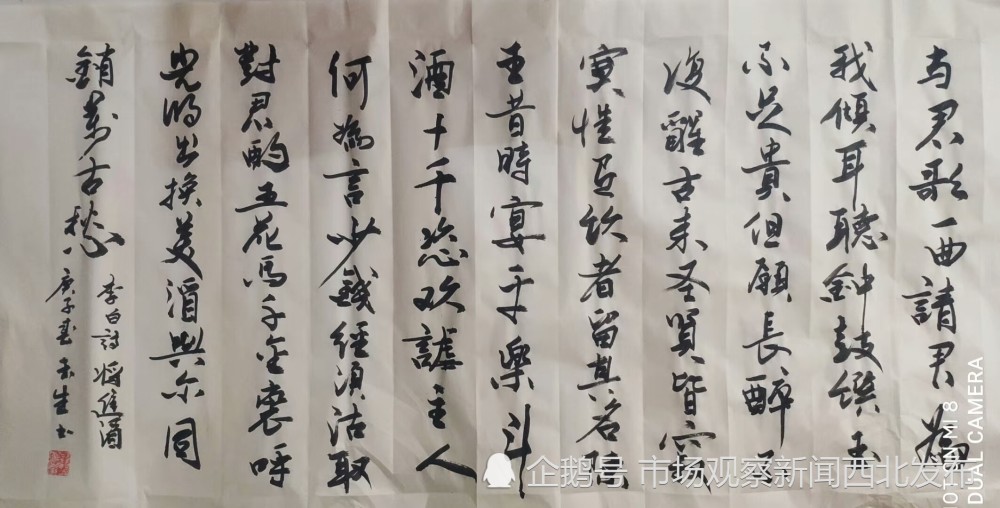 与君歌一曲請君為
我傾耳聽鈡鼓饌玉
不足貴但願長醉不
復醒古来圣賢皆寂
寞惟有飲者留其名陳
王昔時宴平樂斗
酒十千恣欢謔主人
何為言少錢經須沽取
對君酌五花馬千金裘呼
児将出換美酒與尔同
銷萬古愁
李白詩将進酒
庚子春 生书
企鹅号 市场观察新闻西北发布
HOT ON MI 8
DUAL CAMERA